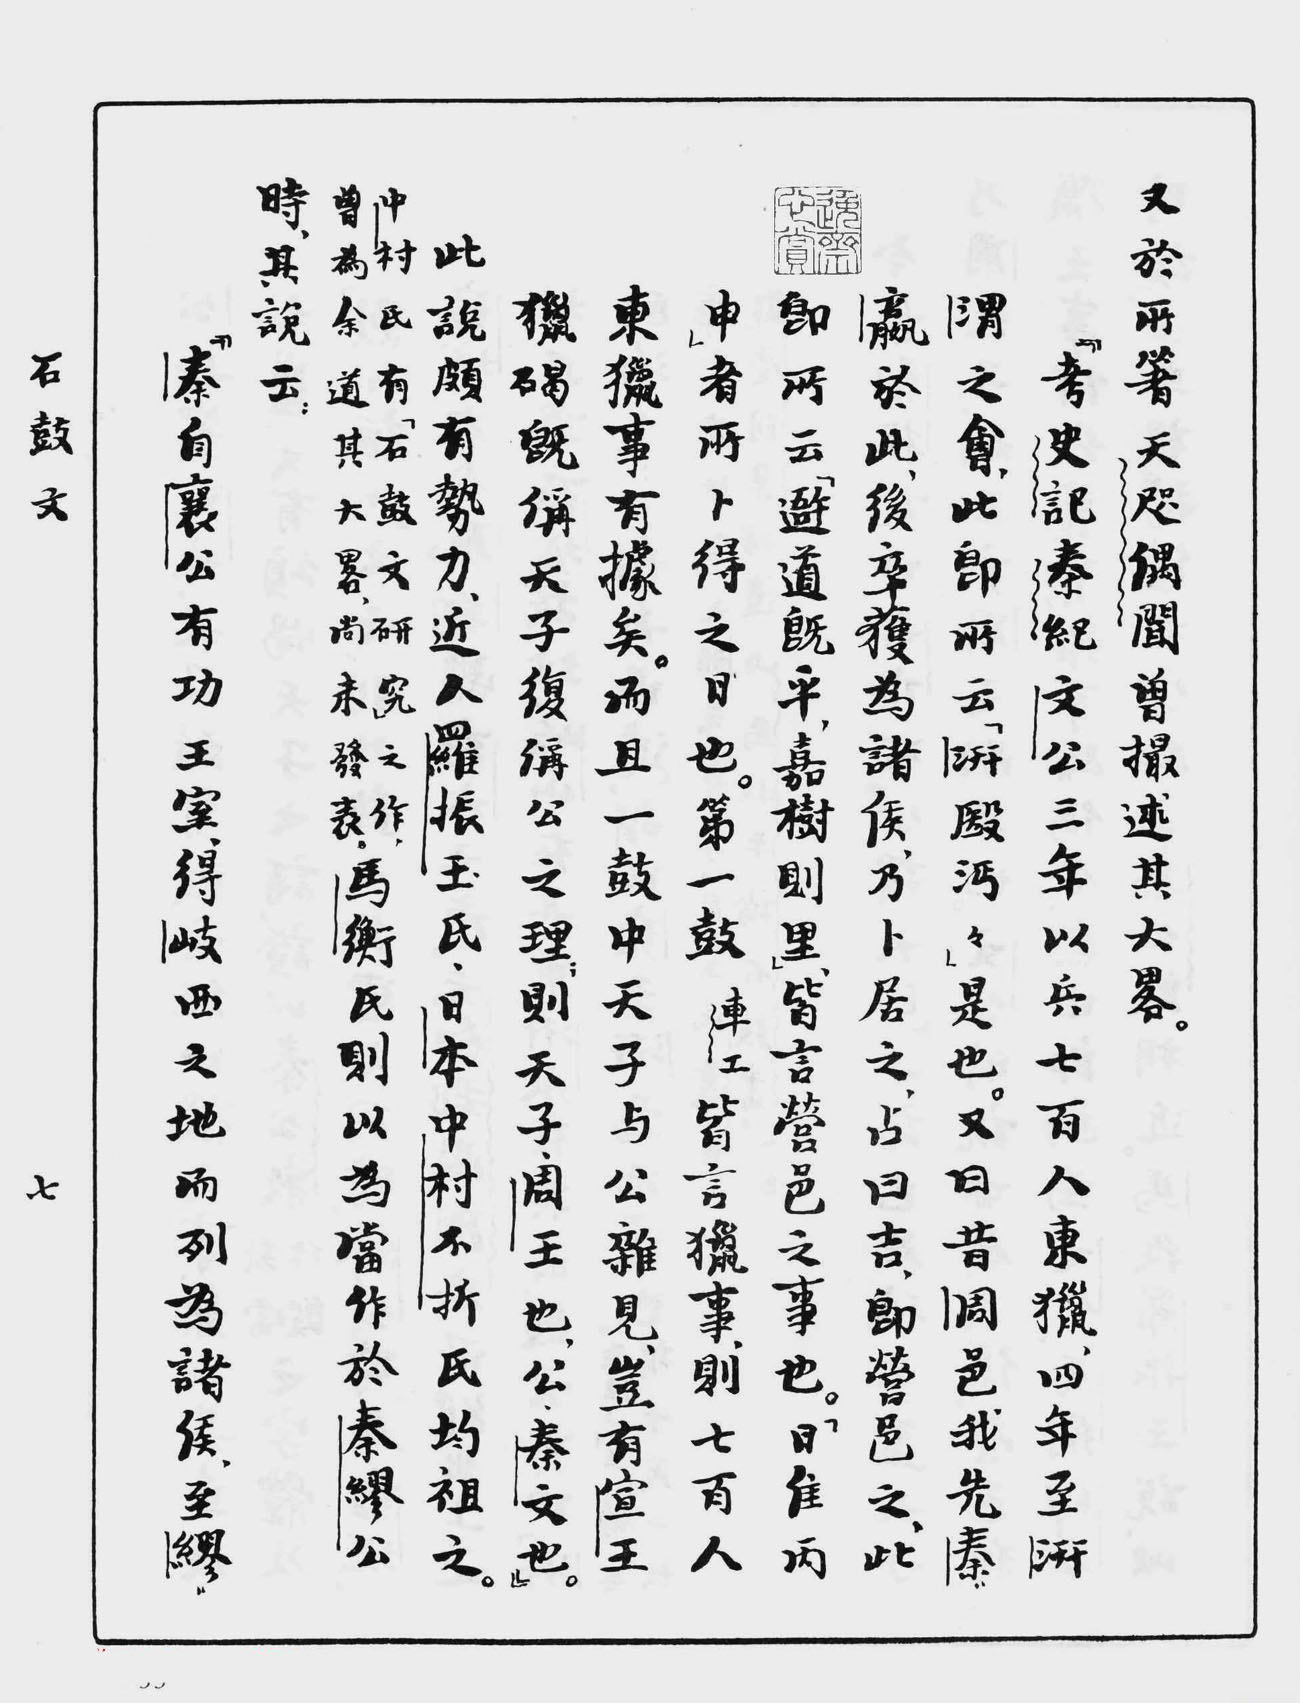 又於所箸天咫偶聞曾撮述其大畧。
『考史記秦紀文公三年以兵七百人東獵、四年至汧
渭之會、此即所云「汧殹沔々」是也。又曰昔周邑我先秦
嬴於此、後卒獲為諸侯、乃卜居之、占曰吉、即營邑之、此
即所云「避道既平、嘉樹則里」、皆言營邑之事也。「日隹丙
申」者所卜得之日也。第一鼓車工皆言獵事、則七百人
東獵事有據矣。而且一鼓中天子与公雜見、豈有宣王
獵碣既稱天子復稱公之理;則天子、周王也、公、秦文也。』
此說頗有勢力、近人羅振玉氏、日本中村不折氏均祖之。
中村氏有「石鼓文研究」之作、
曾為余道其大畧、尚未發表。
馬衡氏則以為當作於秦繆公
時、其說云:
『秦自襄公有功王室、得岐西之地而列為諸侯、至繆
石鼓文
七
逸齋
之賞